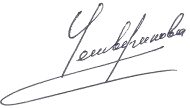 Четверикова